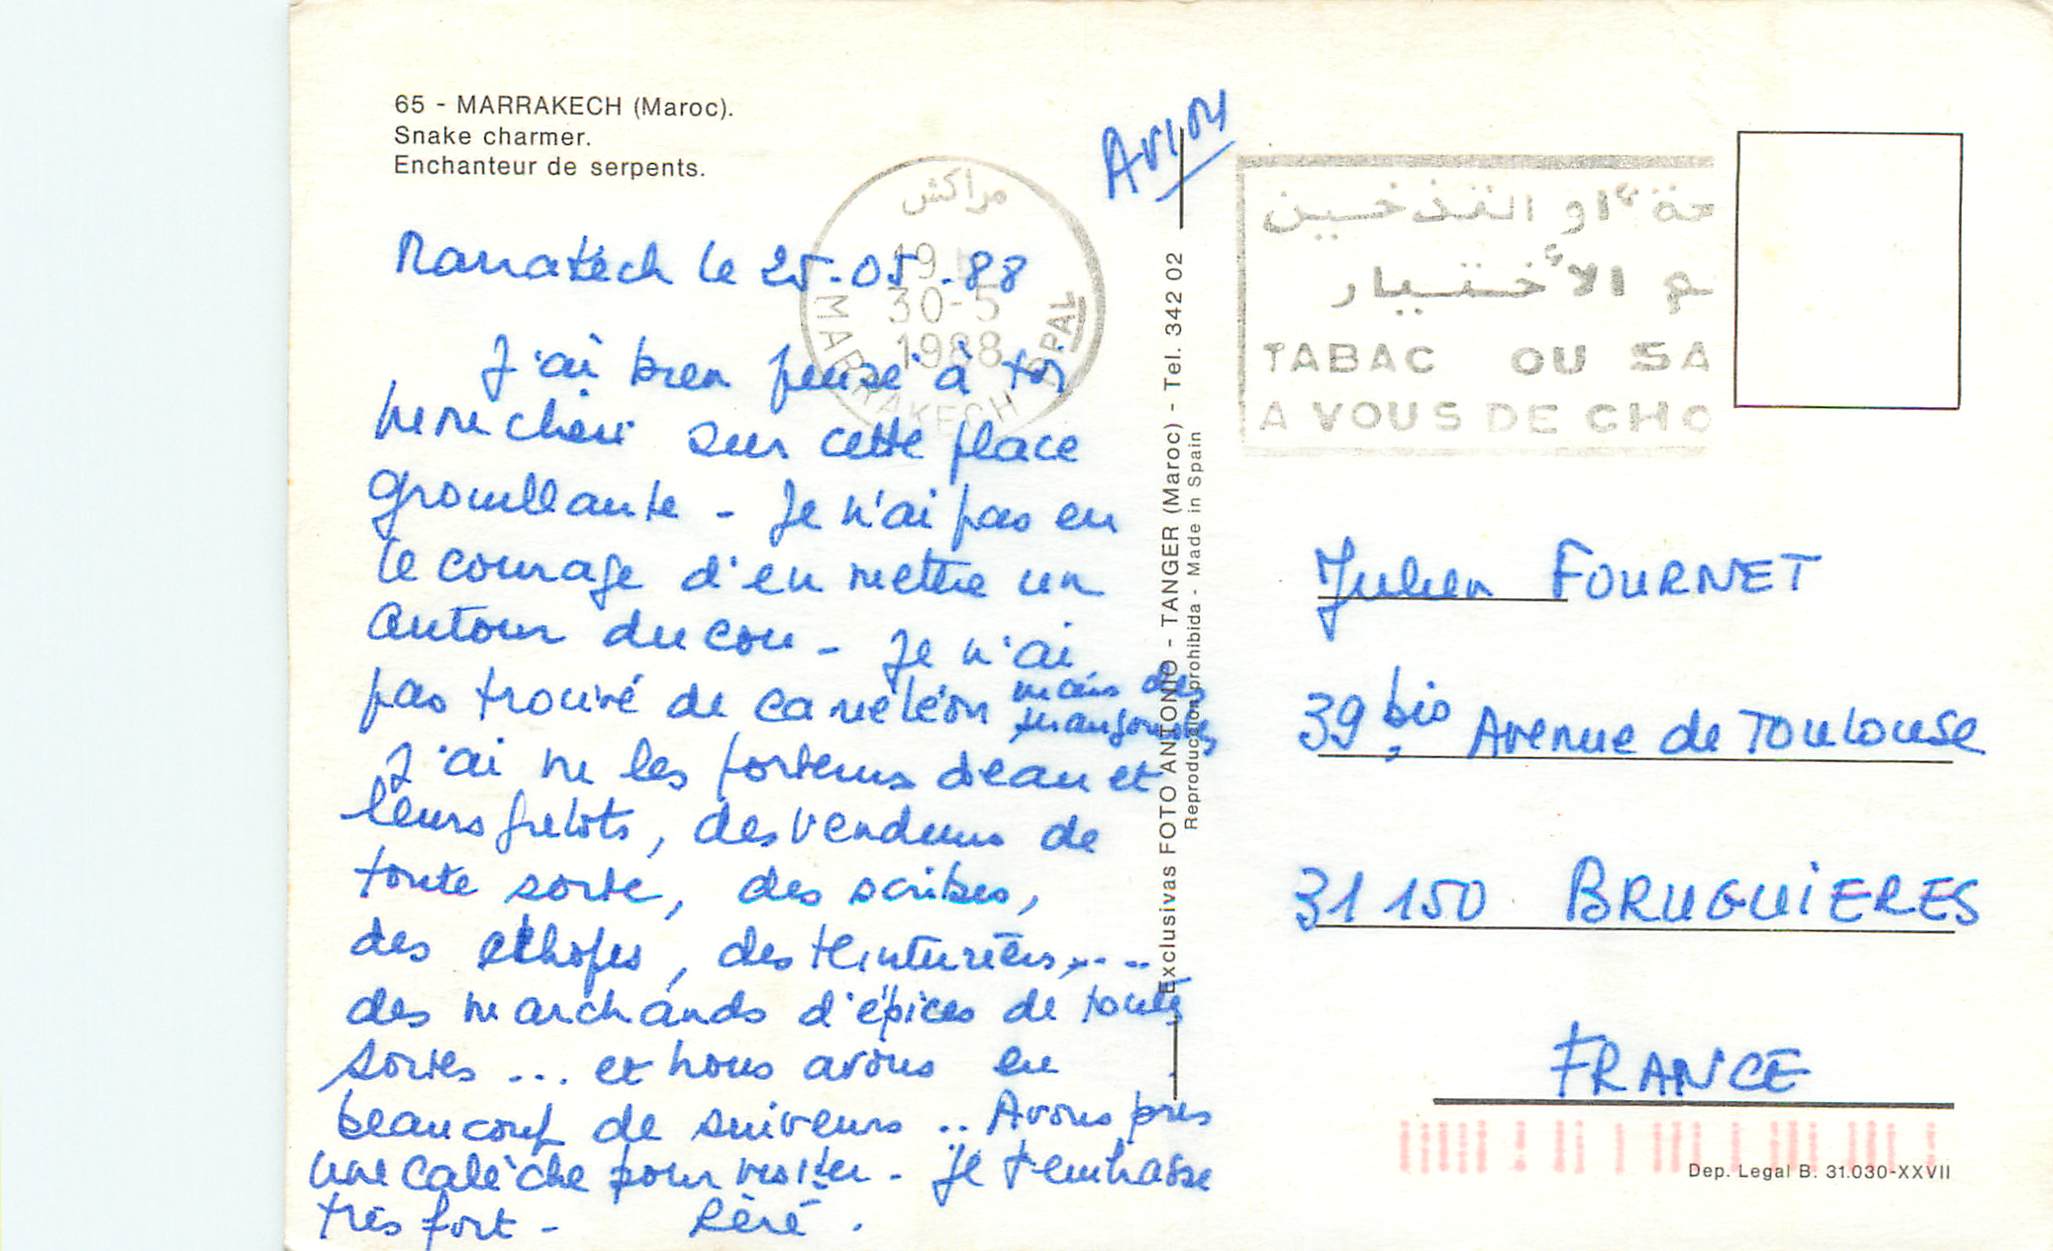 65 - MARRAKECH (Maroc).
Snake charmer.
Enchanteur de serpents.
Avion
مراكش
19
30-5
1988
MARRAKECH PPAL
TABAC OU SA
A VOUS DE CHO
Marrakech le 25-05-88
J'ai bien pensé à toi
mon chéri sur cette place
grouillante - Je n'ai pas eu
le courage d'en mettre un
autour du cou - Je n'ai
pas trouvé de caméléon mais des
mangoustes
J'ai vu les porteurs d'eau et
leurs grelots, des vendeurs de
toute sorte, des scribes,
des échopes, des teinturiers,....
des marchands d'épices de toutes
sortes ... et nous avons eu
beaucoup de suiveurs .. Avons pris
une calèche pour visiter - Je t'embrasse
très fort -
Exclusivas FOTO ANTONIO - TANGER (Maroc) - Tel. 342 02
Reproduccion prohibida - Made in Spain
Julien FOURNET
39 bis Avenue de Toulouse
31 150 BRUGUIERES
FRANCE
Dep. Legal B. 31.030-XXVII